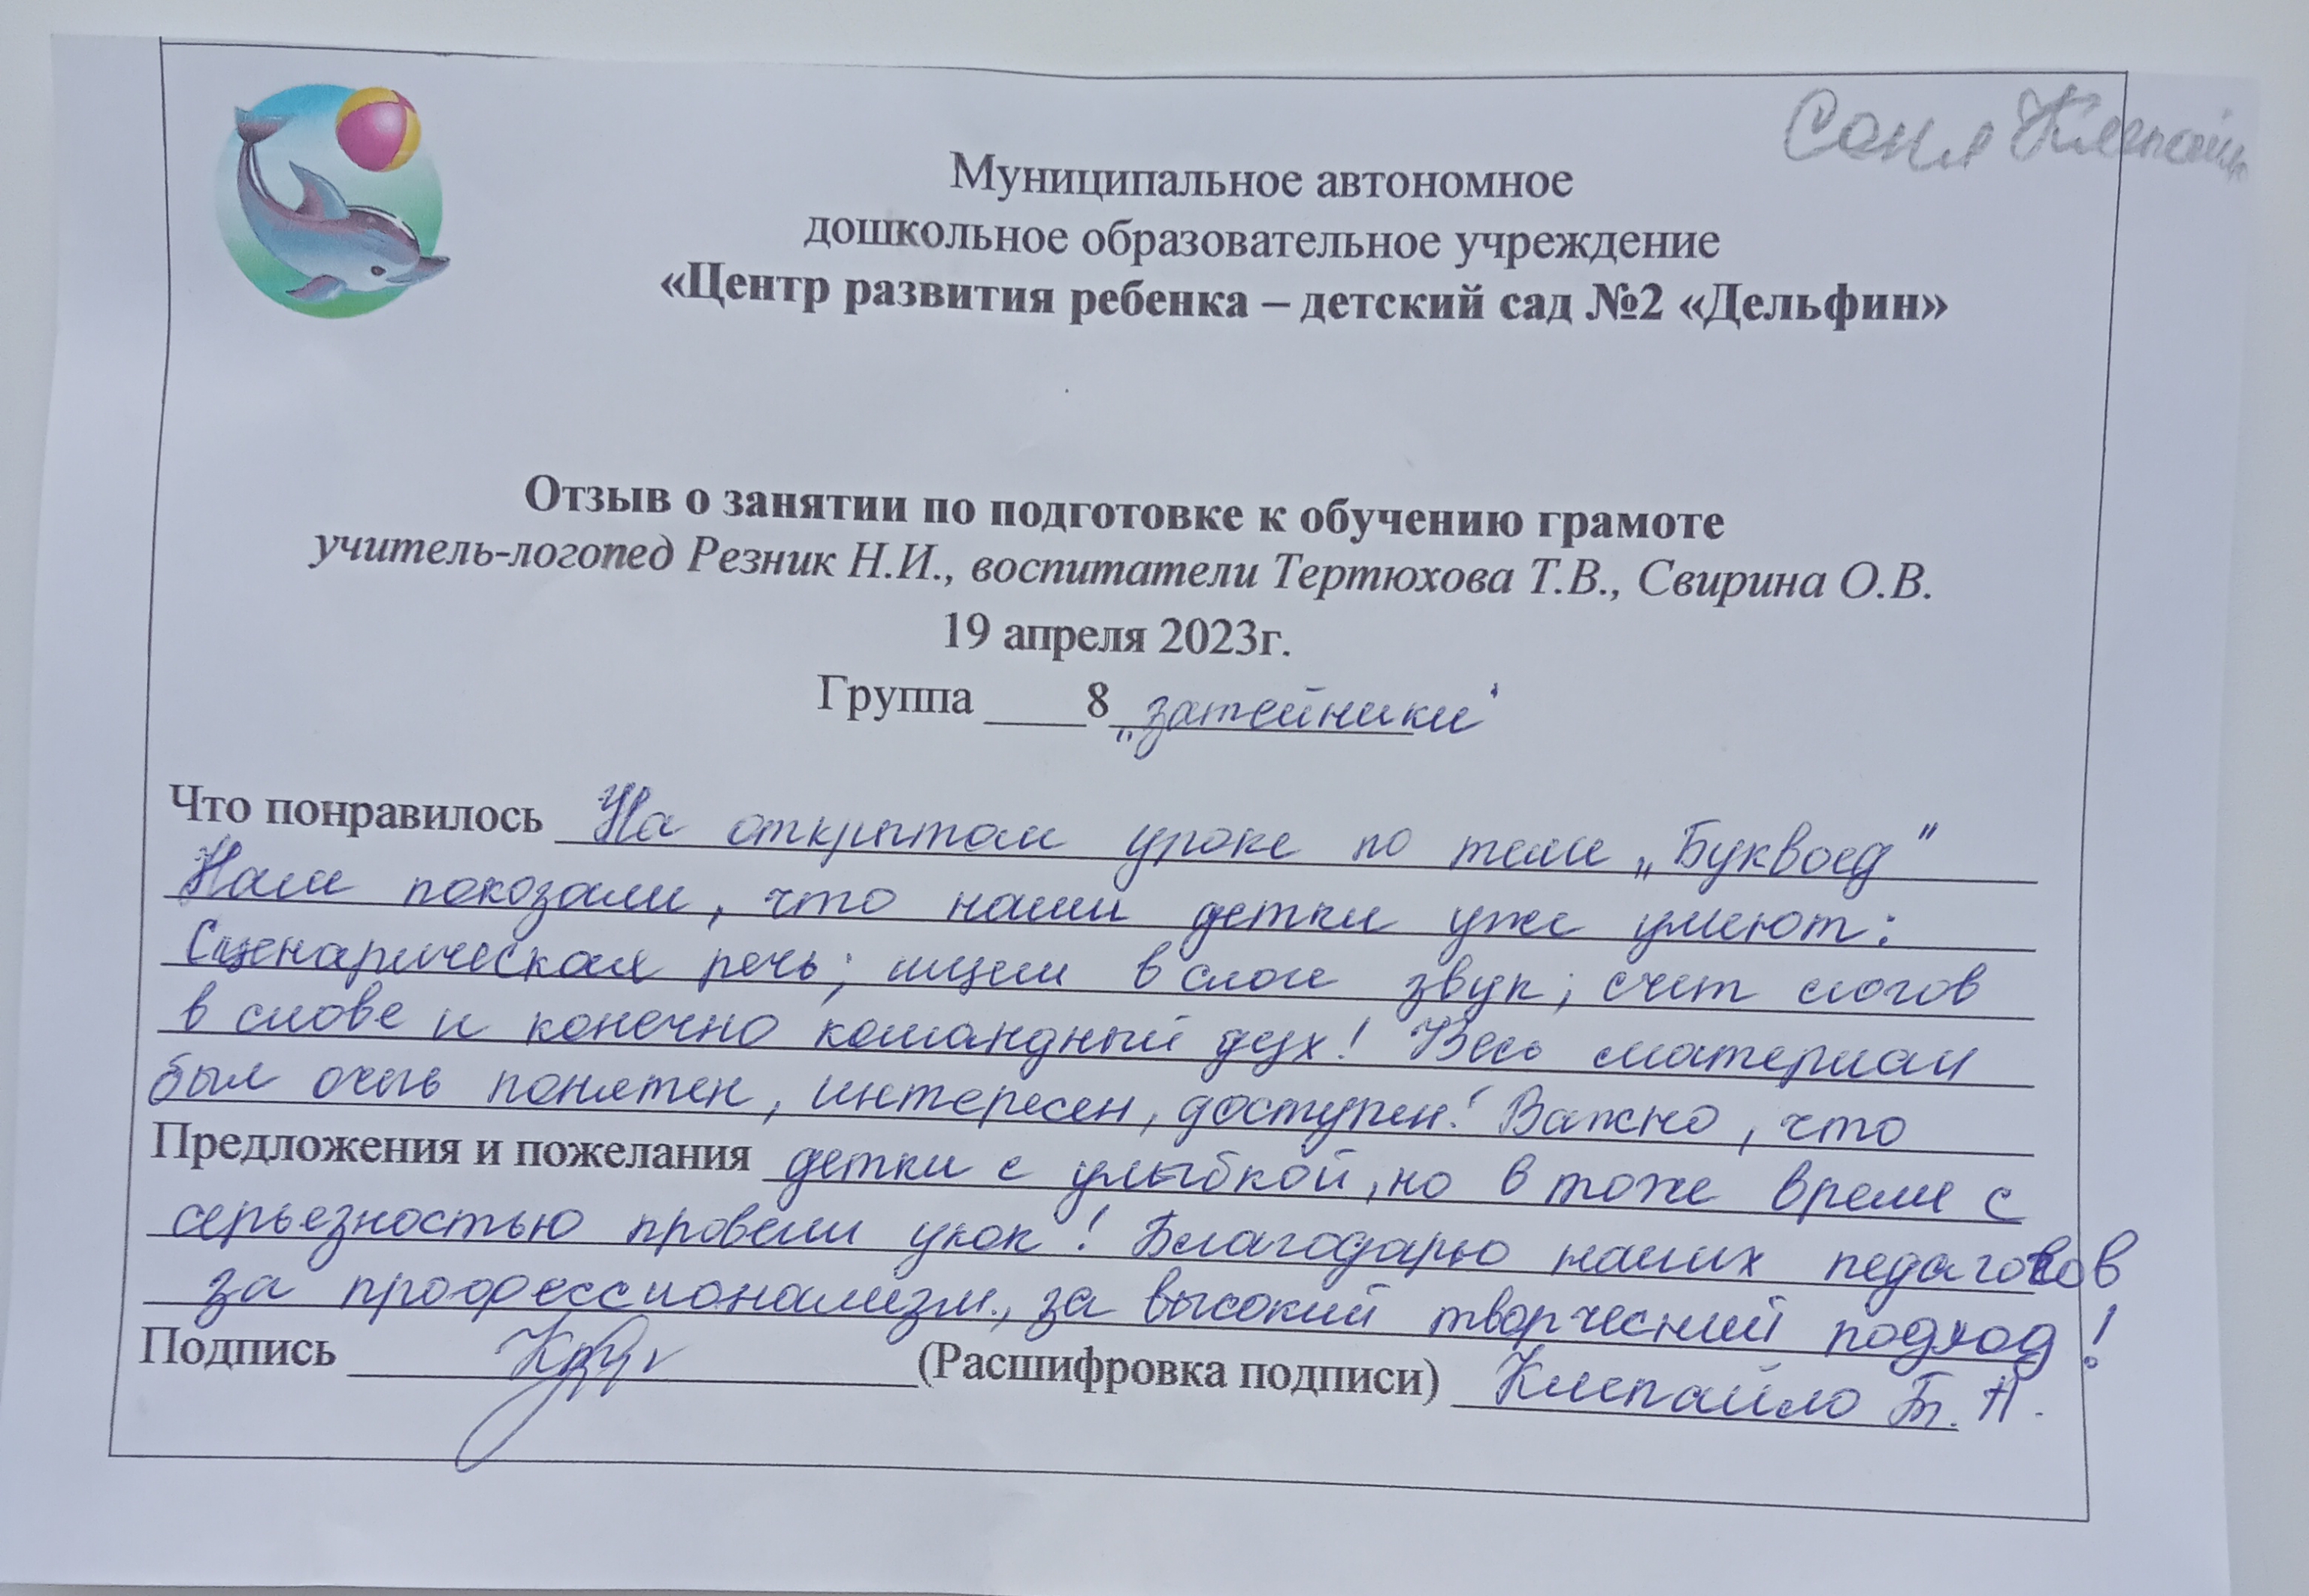 Соня Клепайло
Муниципальное автономное
дошкольное образовательное учреждение
«Центр развития ребенка – детский сад №2 «Дельфин»
Отзыв о занятии по подготовке к обучению грамоте
учитель-логопед Резник Н.И., воспитатели Тертюхова Т.В., Свирина О.В.
19 апреля 2023г.
Группа ____8_„затейники"
Что понравилось На открытом уроке по теме „Буквоед"
Нам показали, что наши детки уже умеют:
Сценарическая речь; ищем в слоге звук; счет слогов
в слове и конечно командный дух! Весь материал
был очень понятен, интересен, доступен! Важно, что
Предложения и пожелания детки с улыбкой, но в тоже время с
серьезностью провели урок! Благодарю наших педагогов
за профессионализм, за высокий творческий подход!
Подпись (Расшифровка подписи) Клепайло Б. А.